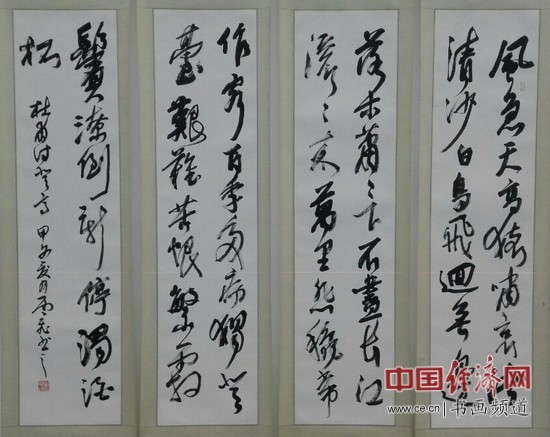 風急天高猿嘯哀渚
清沙白鳥飛迴無邊
落木蕭〻下不盡長江
滾〻來萬里悲穐常
作客百年多病獨登
臺艱難苦恨繁霜
鬢潦倒新停濁酒
杯
杜甫詩登高 甲午
中国经济网
www.ce.cn 书画频道